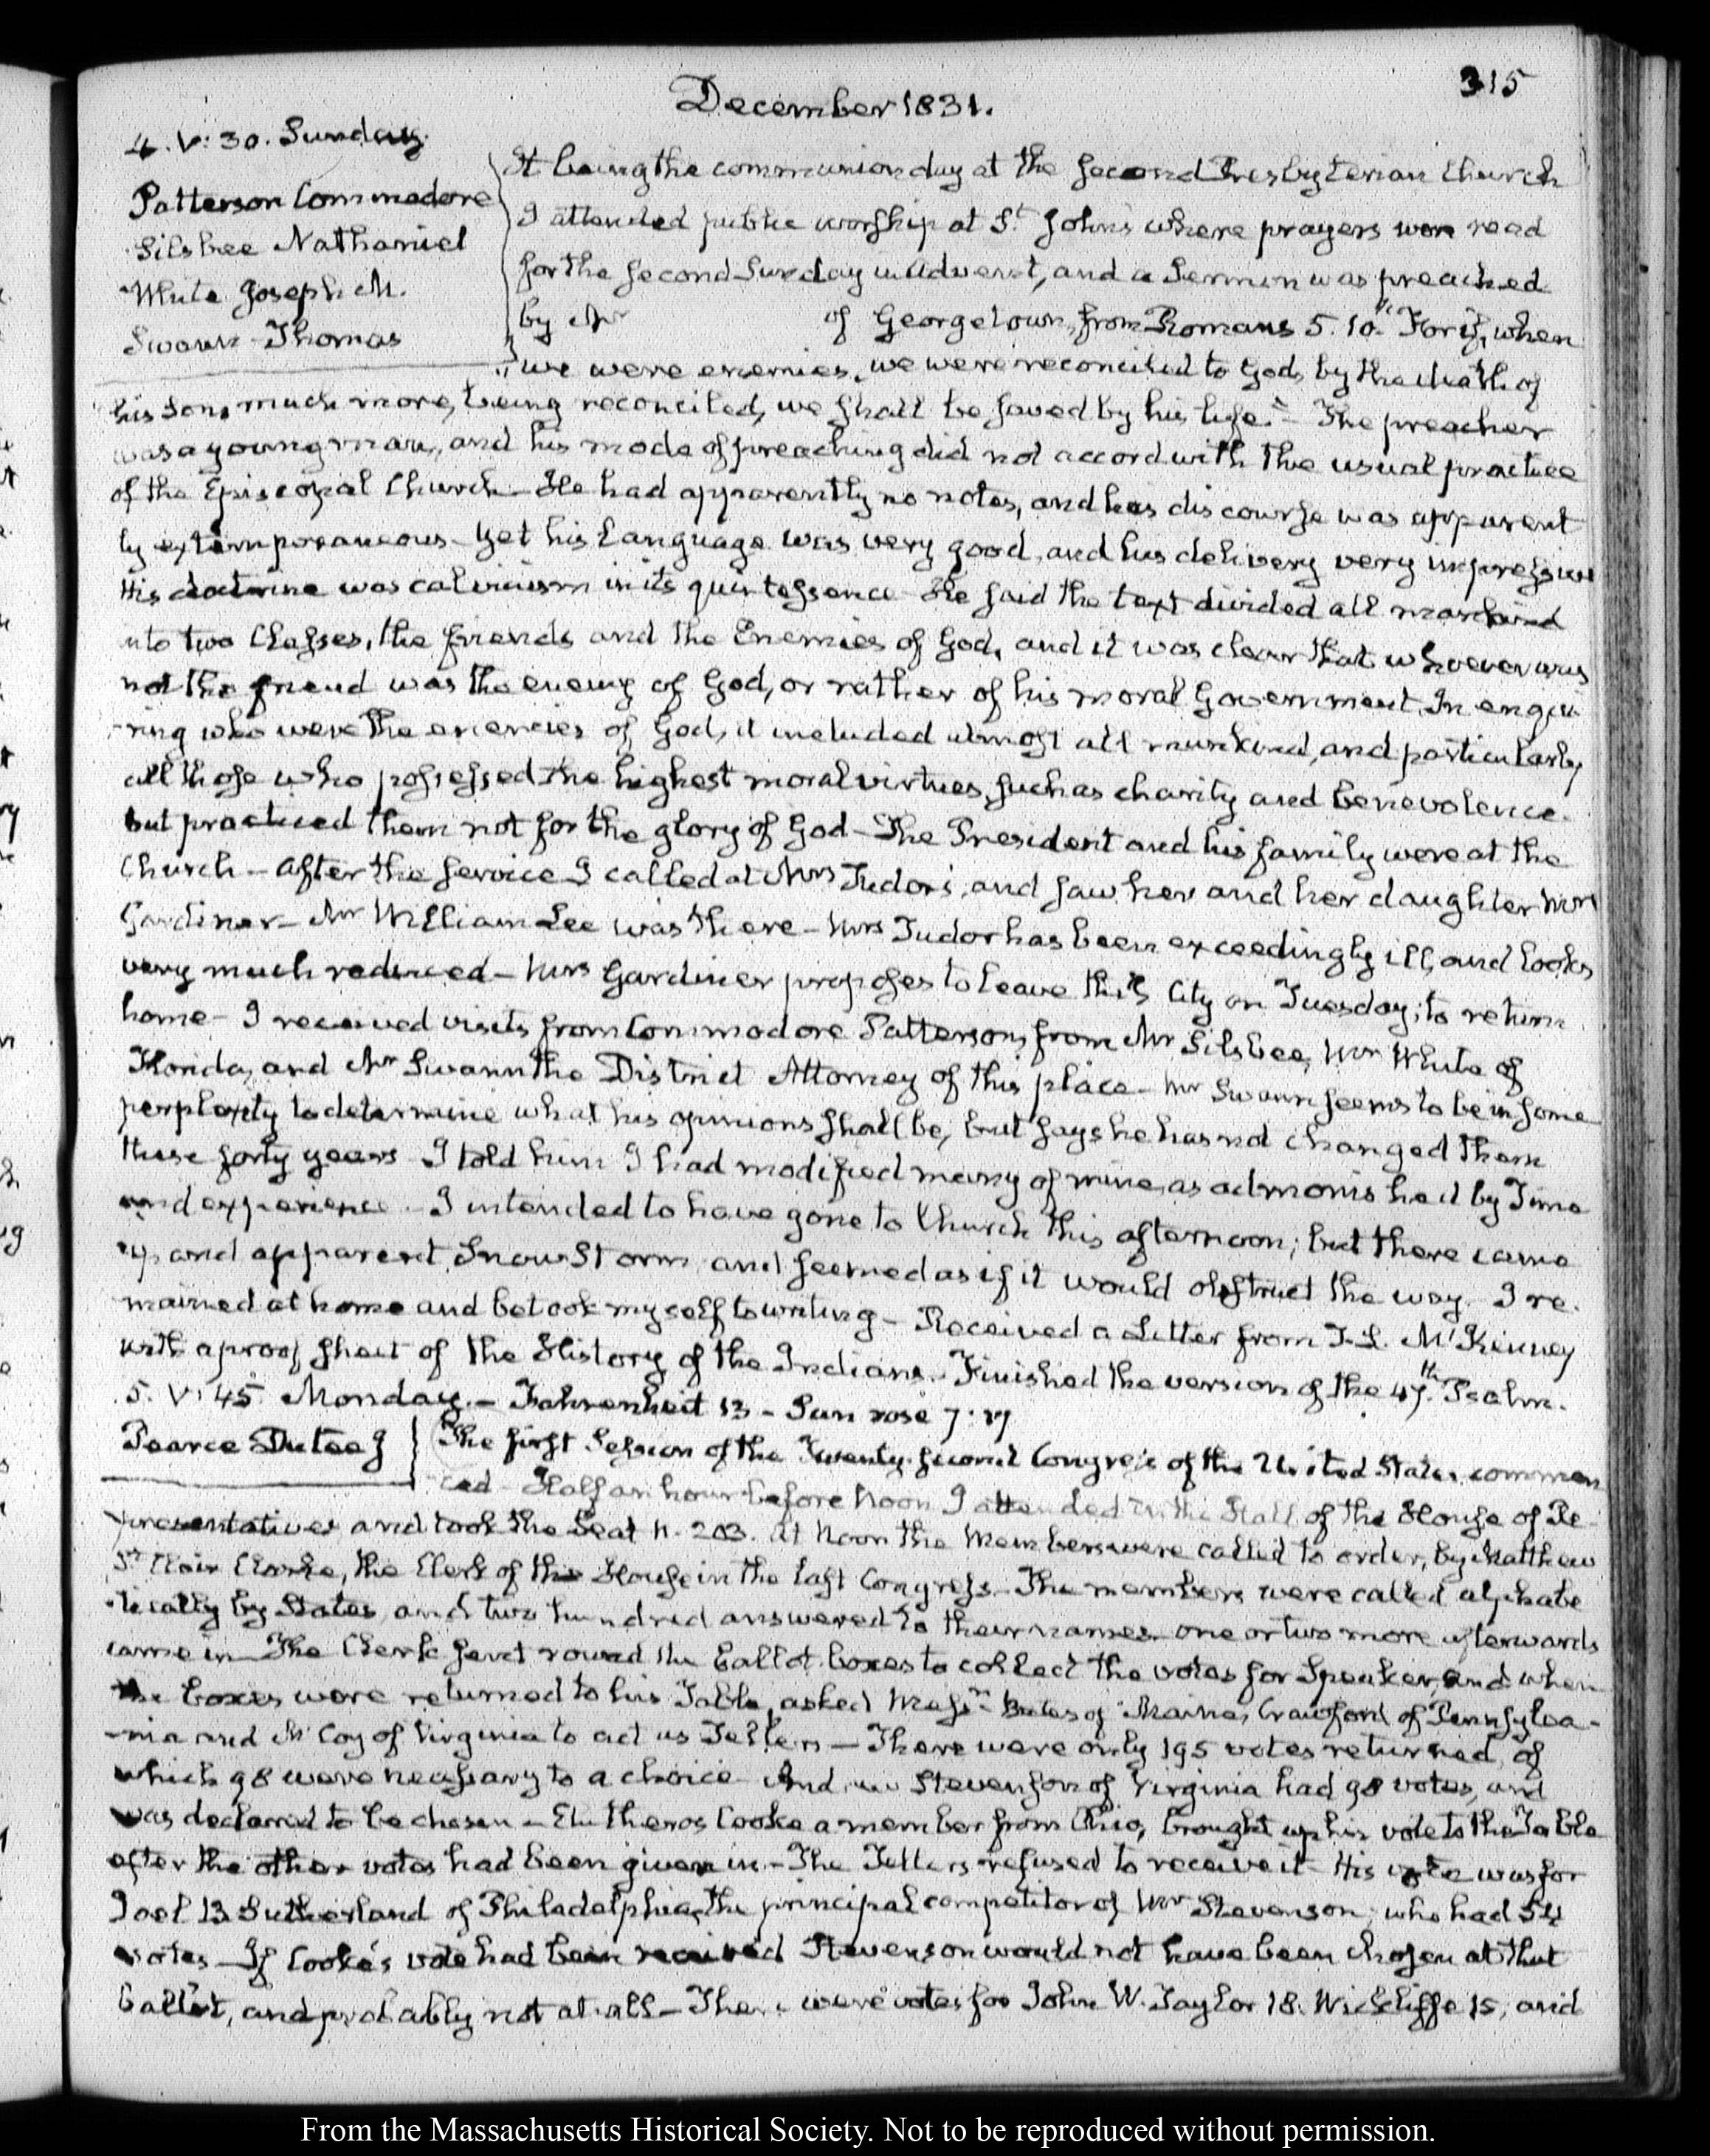 315
December 1831.
4. V: 30. Sunday.
Patterson Commodore
Silsbee Nathaniel
White Joseph M.
Swann Thomas
It being the communion day at the Second Presbyterian Church
I attended public worship at St. John's where prayers were read
for the Second Sunday in Advent, and a Sermon was preached
by Mr of Georgetown, from Romans 5. 10. "For if, when
we were enemies, we were reconciled to God, by the death of
his Son, much more, being reconciled, we shall be saved by his life." The preacher
was a young man, and his mode of preaching did not accord with the usual practice
of the Episcopal Church — He had apparently no notes, and his discourse was apparent
ly extemporaneous — Yet his language was very good, and his delivery very impressive
His doctrine was calvinism in its quintessence He said the text divided all mankind
into two Classes, the friends and the Enemies of God, and it was clear that whoever was
not the friend was the enemy of God, or rather of his moral Government. In enqui-
-ring who were the enemies of God, it included almost all mankind, and particularly
all those who possessed the highest moral virtues, such as charity and benevolence.
but practiced them not for the glory of God — The President and his family were at the
Church — After the service I called at Mrs Tudor's, and saw her and her daughter Mrs
Gardiner — Mr William Lee was there — Mrs Tudor has been exceedingly ill, and looks
very much reduced — Mrs Gardiner proposes to leave this City on Tuesday; to return
home — I received visits from Commodore Patterson, from Mr Silsbee, Mr White of
Florida, and Mr Swann the District Attorney of this place — Mr Swann seems to be in some
perplexity to determine what his opinions shall be, but says he has not changed them
these forty years I told him I had modified many of mine, as admonished by Time
and experience. — I intended to have gone to Church this afternoon; but there came
up and apparent Snow Storm and seemed as if it would obstruct the way. I re-
mained at home and betook myself to writing — Received a Letter from T. L. McKenney
with a proof sheet of the History of the Indians. Finished the version of the 47th. Psalm.
5. V: 45 Monday. — Fahrenheit 13 — Sun rose 7:17
Pearce Dutee J
The first Session of the Twenty-second Congress of the United States, commen
ced — Half an hour before Noon I attended in the Hall of the House of Re-
presentatives and took the Seat N. 203. At Noon the Members were called to order, by Matthew
St. Clair Clarke, the Clerk of the House in the last Congress — The members were called alphabe
tically by States, and two hundred answered to their names — one or two more afterwards
came in — The Clerk sent round the ballot boxes to collect the votes for Speaker, and when
the boxes were returned to his Table, asked Messrs. Bates of Maine, Crawford of Pennsylva-
-nia and McCoy of Virginia to act as Tellers — There were only 195 votes returned, of
which 98 were necessary to a choice — Andrew Stevenson of Virginia had 98 votes, and
was declared to be chosen — Eleutheros Cooke a member from Ohio, brought up his vote to the Table
after the other votes had been given in — The Tellers refused to receive it — His vote was for
Joel B Sutherland of Philadelphia, the principal competitor of Mr Stevenson, who had 54
votes — If Cooke's vote had been received Stevenson would not have been chosen at that
ballot, and probably not at all — There were votes for John W. Taylor 18. Wickliffe 15, and
From the Massachusetts Historical Society. Not to be reproduced without permission.